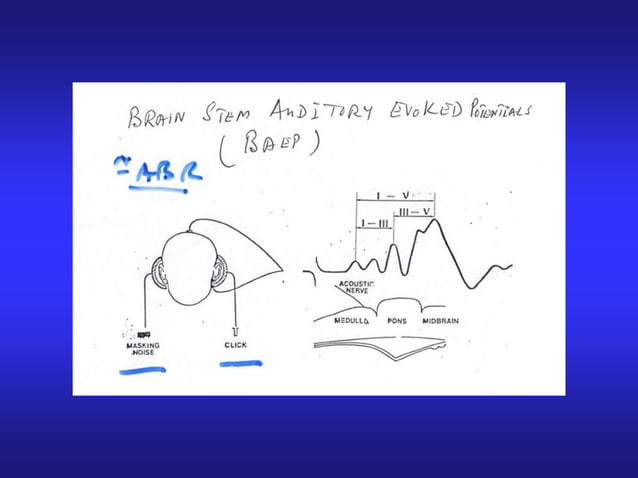 BRAIN STEM AUDITORY EVOKED POTENTIALS
(BAEP)
≈ ABR
I – V
III – V
I – III
ACOUSTIC NERVE
MEDULLA PONS MIDBRAIN
MASKING NOISE
CLICK